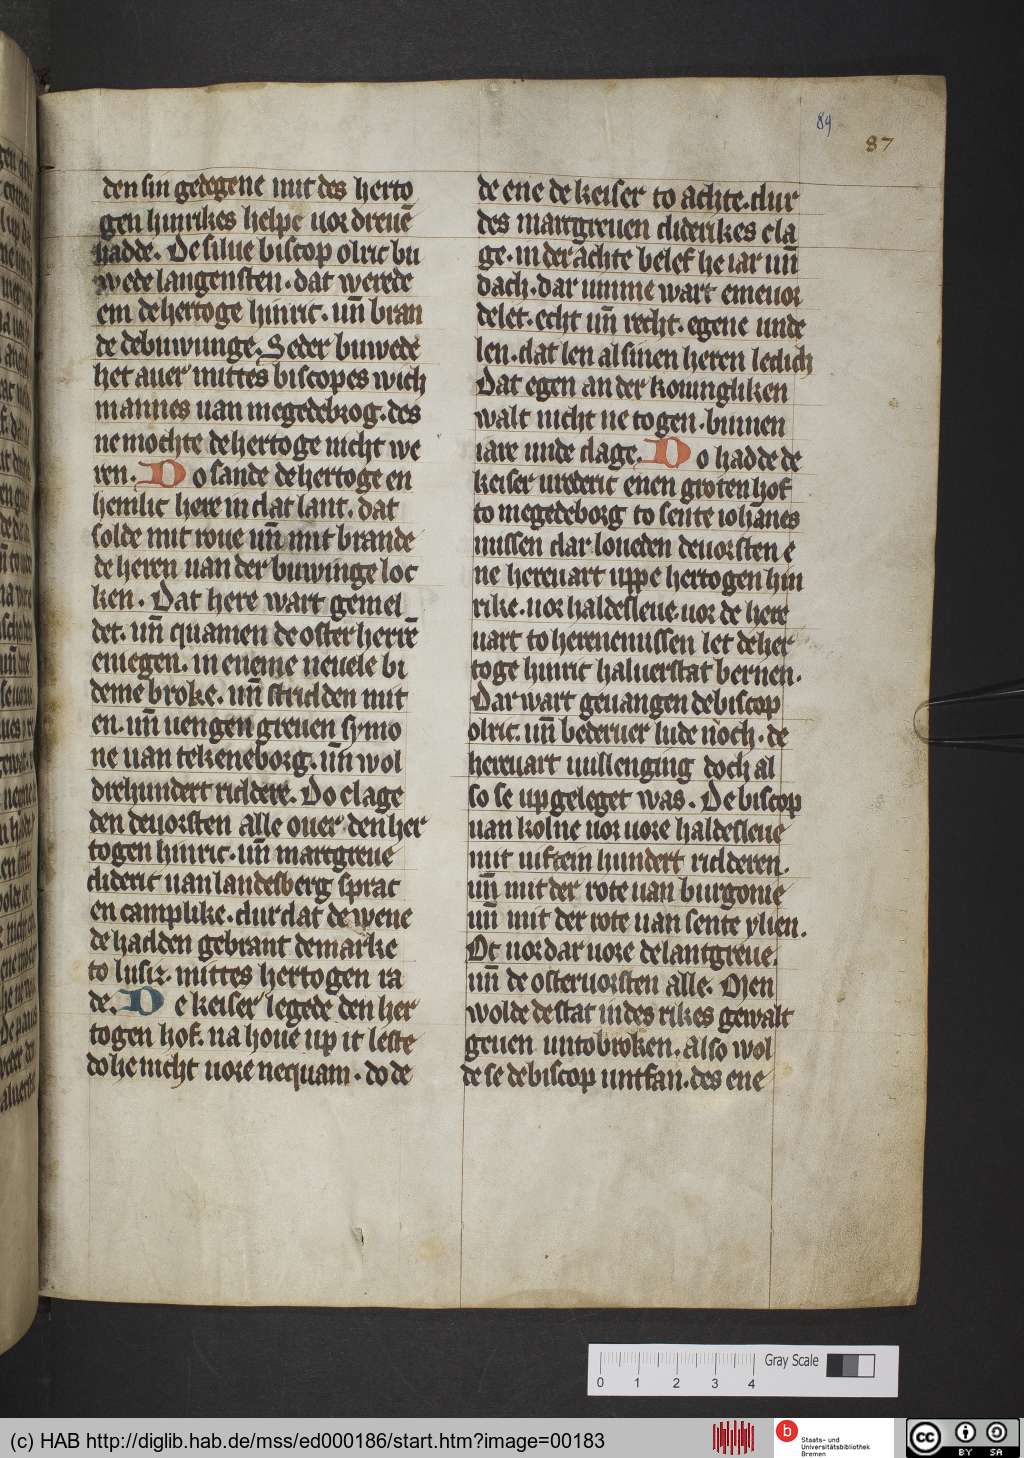 89
87
den sin gedegene mit des herto
gen hinrikes helpe uor dreuē
hadde. De silue biscop olric bu
wede langensten. dat werede
em de hertoge hinric. un̄ bran
de de buwunge. Seder buwede
het auer mittes biscopes wich
mannes uan megedeborg. des
ne mochte de hertoge nicht we
ren. Do sande de hertoge en
hemlic here in dat lant. dat
solde mit roue un̄ mit brande
de heren uan der buwinge loc
ken. Dat here wart gemel
det. un̄ quamen de oster herrē
en iegen. in eneme neuele bi
deme broke. un̄ stridden mit
en. un̄ uengen greuen symo
ne uan tekeneborg. un̄ wol
drehundert riddere. Do clage
den de uorsten alle ouer den her
togen hinric. un̄ marcgreue
dideric uan landesberg sprac
en camplike. dur dat de wene
de hadden gebrant de marke
to lusiz. mittes hertogen ra
de. De keiser legede den her
togen hof. na houe up it leste
do he nicht uore ne quam. do de
de ene de keiser to achte. dur
des marcgreuen diderikes cla
ge. in der achte belef he iar un̄
dach. dar umme wart em euor
delet. echt un̄ recht. egene unde
len. dat len al sinen heren ledich
Dat egen an der koningliken
walt nicht ne togen. binnen
iare unde dage. Do hadde de
keiser urederic enen groten hof
to megedeborg to sente iohannes
missen dar loueden de uorsten e
ne hereuart uppe hertogen hin
rike. uor haldesleue. uor de here
uart to herenemissen let de her
toge hinric haluerstat bernen.
Dar wart geuangen de biscop
olric. un̄ bederuer lude noch. de
hereuart uuslenging doch al
so se up geleget was. De biscop
uan kolne uor uore haldesleue
mit uiftein hundert ridderen.
un̄ mit der rote uan burgonie
un̄ mit der rote uan sente ylien.
Oc uor dar uore de lantgreue.
un̄ de osteruorsten alle. Men
wolde de stat in des rikes gewalt
geuen untobroken. also wol
de se de biscop untfan. des ene
Gray Scale
0 1 2 3 4
(c) HAB http://diglib.hab.de/mss/ed000186/start.htm?image=00183
b
Staats- und
Universitätsbibliothek
Bremen
cc
BY SA